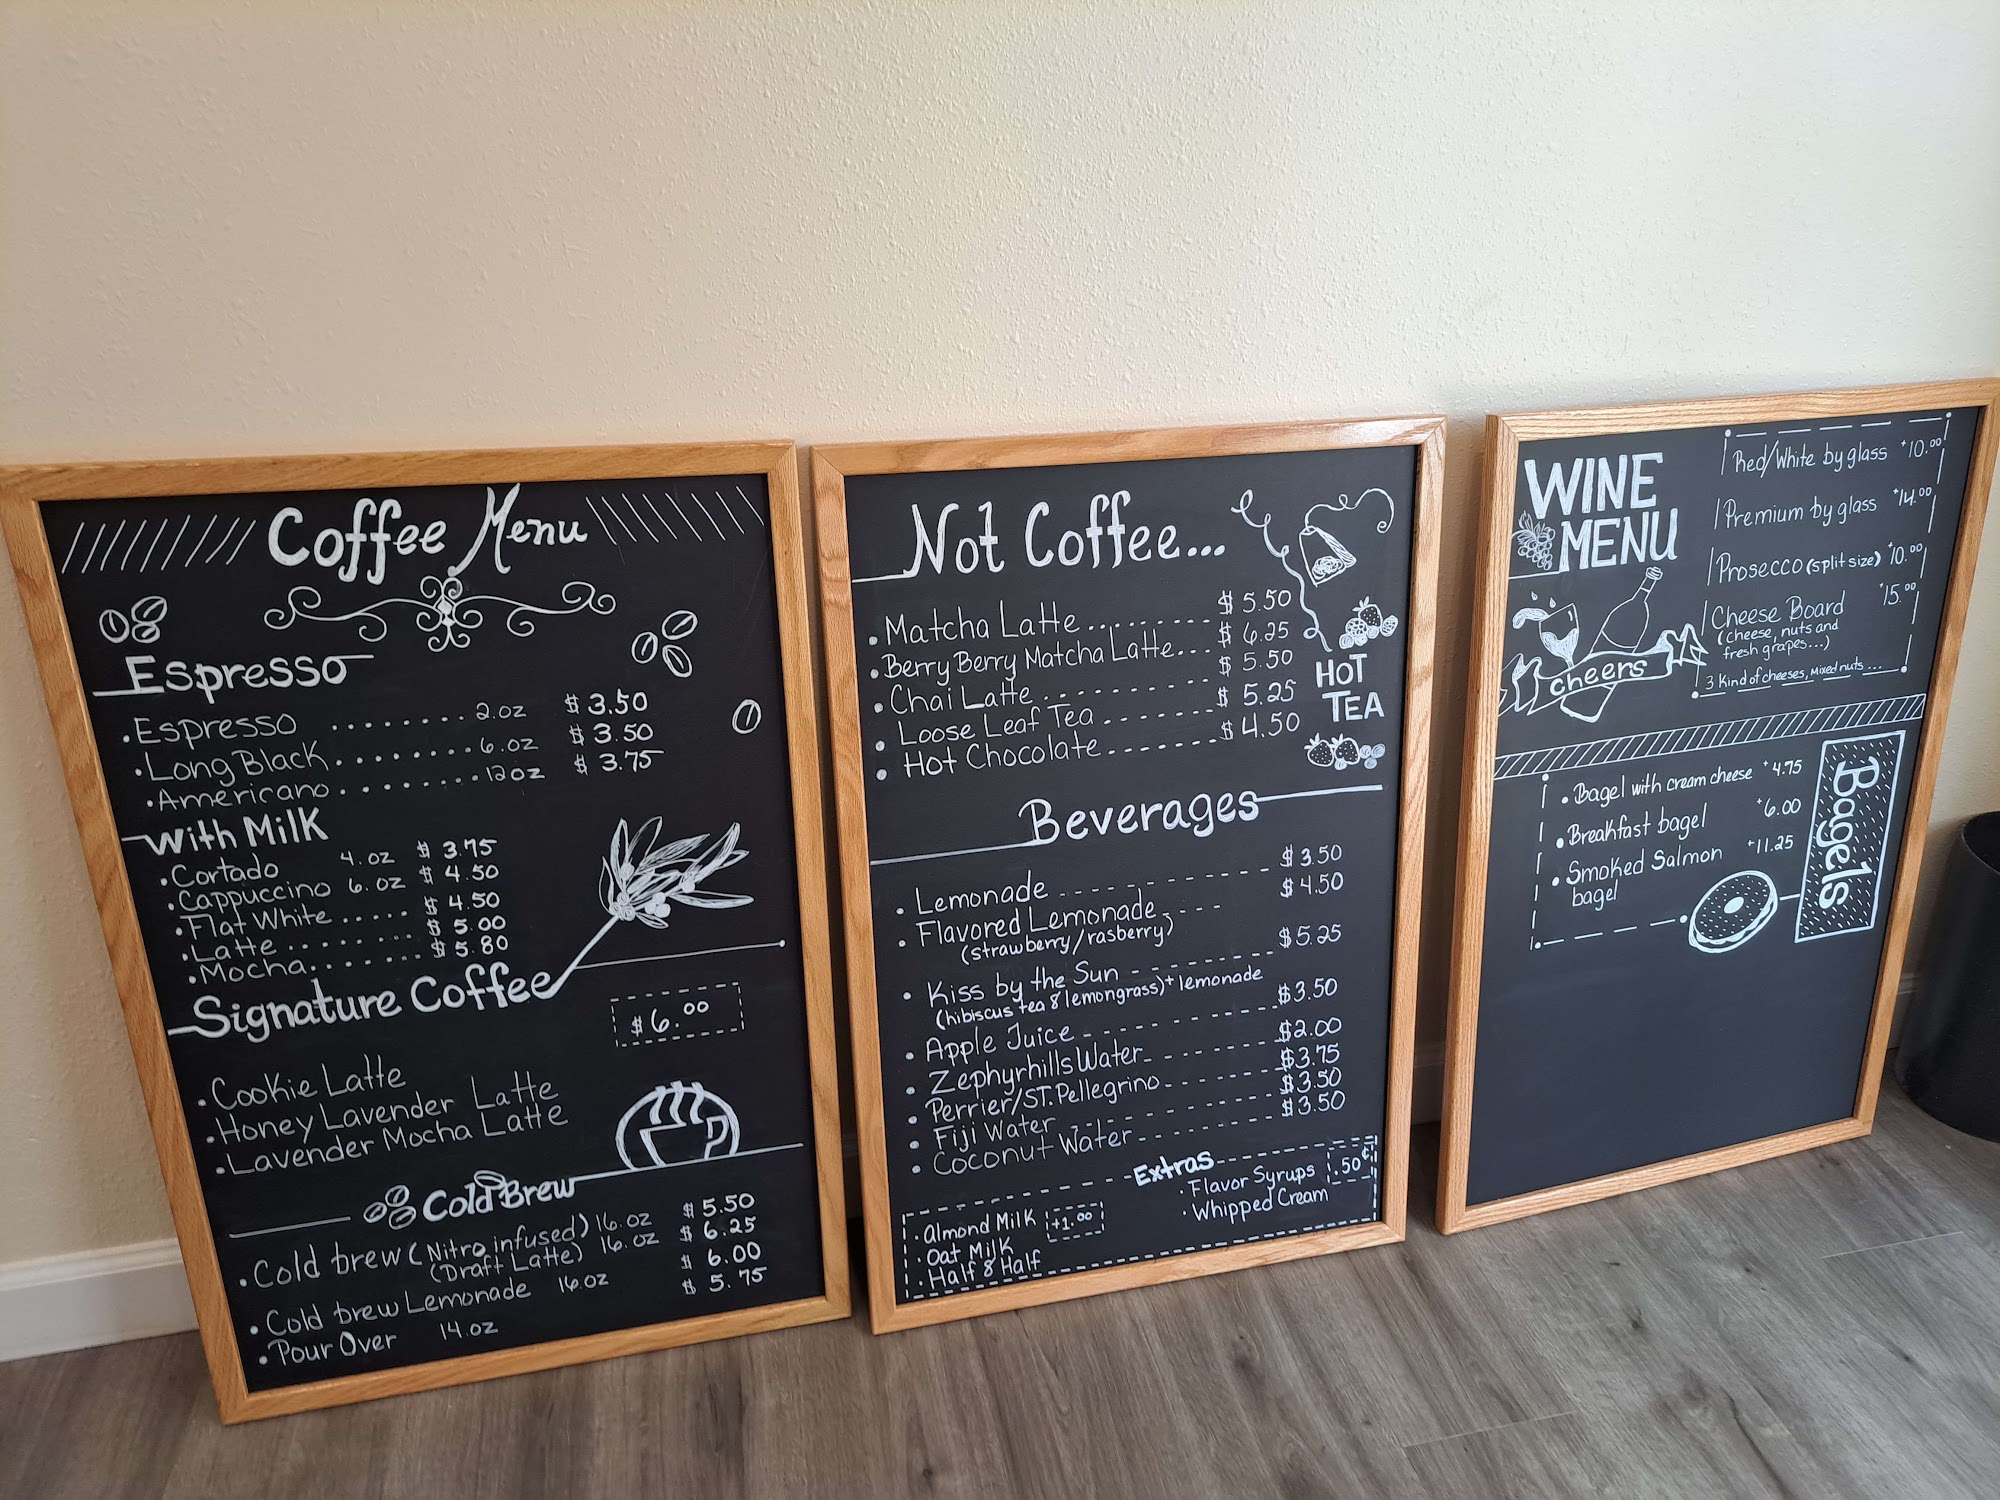 Coffee Menu
Espresso
• Espresso ........ 2.oz $ 3.50
• Long Black ........ 6.oz $ 3.50
• Americano ........ 12oz $ 3.75
With Milk
• Cortado 4.oz $ 3.75
• Cappuccino 6.oz $ 4.50
• Flat White ..... $ 4.50
• Latte ........ $ 5.00
• Mocha....... $ 5.80
Signature Coffee
$6.00
• Cookie Latte
• Honey Lavender Latte
• Lavender Mocha Latte
Cold Brew
• Cold brew (Nitro infused) 16.oz $ 5.50
(Draft Latte) 16.oz $ 6.25
• Cold brew Lemonade 16.oz $ 6.00
• Pour Over 14.oz $ 5.75
Not Coffee...
• Matcha Latte ........ $ 5.50
• Berry Berry Matcha Latte... $ 6.25
• Chai Latte .......... $ 5.50
• Loose Leaf Tea ....... $ 5.25
• Hot Chocolate ....... $ 4.50
HOT
TEA
Beverages
• Lemonade ------------ $3.50
• Flavored Lemonade ---- $4.50
(strawberry/rasberry)
• Kiss by the Sun -------- $5.25
(hibiscus tea & lemongrass)+ lemonade
• Apple Juice ----------- $3.50
• Zephyrhills Water -------- $2.00
• Perrier/ST. Pellegrino ------- $3.75
• Fiji Water ----------- $3.50
• Coconut Water --------- $3.50
Extras
• Flavor Syrups .50¢
• Whipped Cream
• Almond Milk +1.00
• Oat Milk
• Half & Half
WINE
MENU
Red/White by glass +10.00
Premium by glass +14.00
Prosecco (split size) +10.00
Cheese Board +15.00
(cheese, nuts and
fresh grapes...)
3 Kind of cheeses, mixed nuts ...
cheers
• Bagel with cream cheese + 4.75
• Breakfast bagel +6.00
• Smoked Salmon +11.25
bagel
Bagels